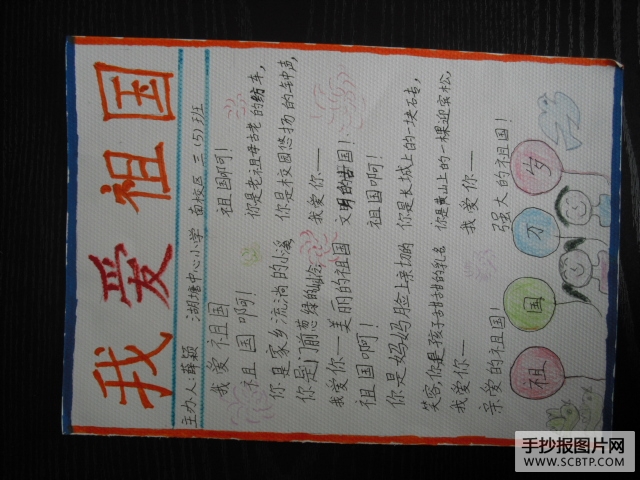 我爱祖国
主办人:薛颖 湖塘中心小学 南校区 三(5)班
我爱祖国
祖国啊!
你是家乡流淌的小溪
你是门前葱绿的山岭
我爱你—美丽的祖国
祖国啊!
你是妈妈脸上亲切的
笑容,你是孩子甜甜的乳名
我爱你—
亲爱的祖国!
祖国啊!
你是老祖母古老的纺车,
你是校园悠扬的钟声,
我爱你—
文明的古国!
祖国啊!
你是长城上的一块砖,
你是黄山上的一棵迎宾松,
我爱你—
强大的祖国!
祖国万岁
手抄报图片网
WWW.SCBTP.COM